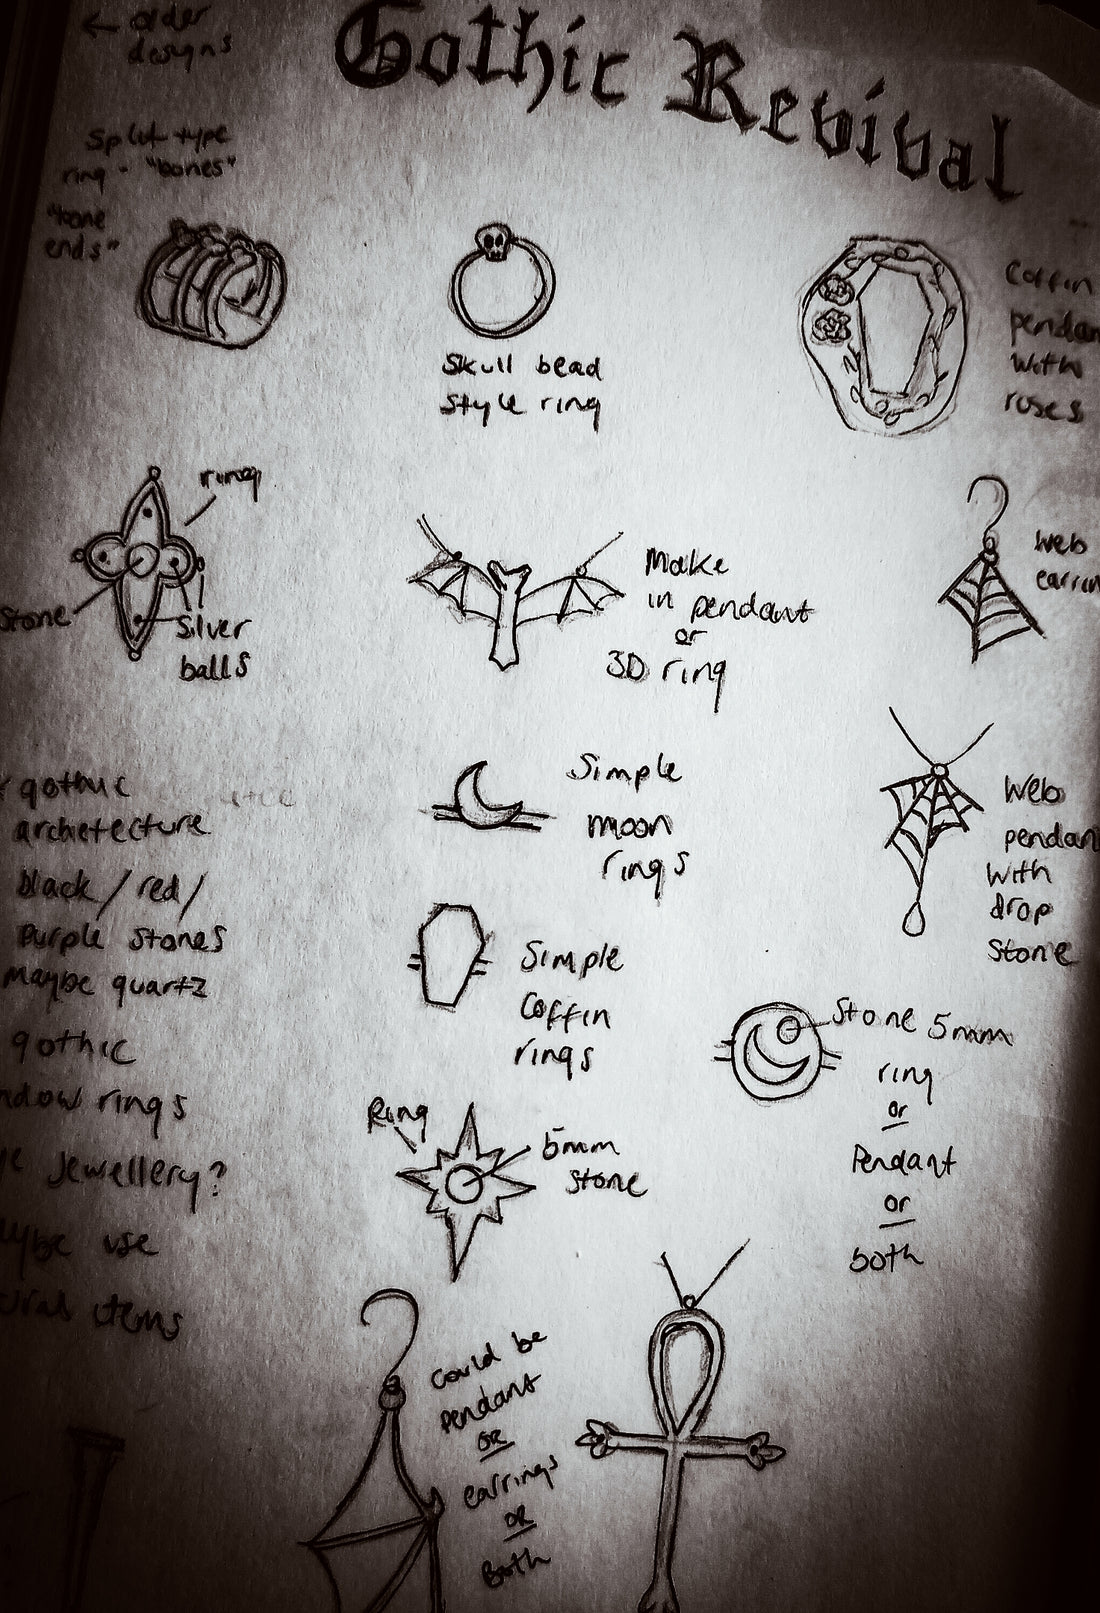 ← older
designs
Gothic Revival
Split type
ring - "bones"
"bone
ends"
Skull bead
style ring
Coffin
with
roses
ring
Stone
Silver
balls
Make
in pendant
or
3D ring
Web
gothic
archetecture
black / red /
purple stones
maybe quartz
gothic
rings
Jewellery?
use
items
Simple
moon
rings
Web
with
drop
Stone
Simple
Coffin
rings
Stone 5mm
ring
or
Pendant
or
both
Ring
5mm
stone
Could be
pendant
OR
earrings
OR
Both